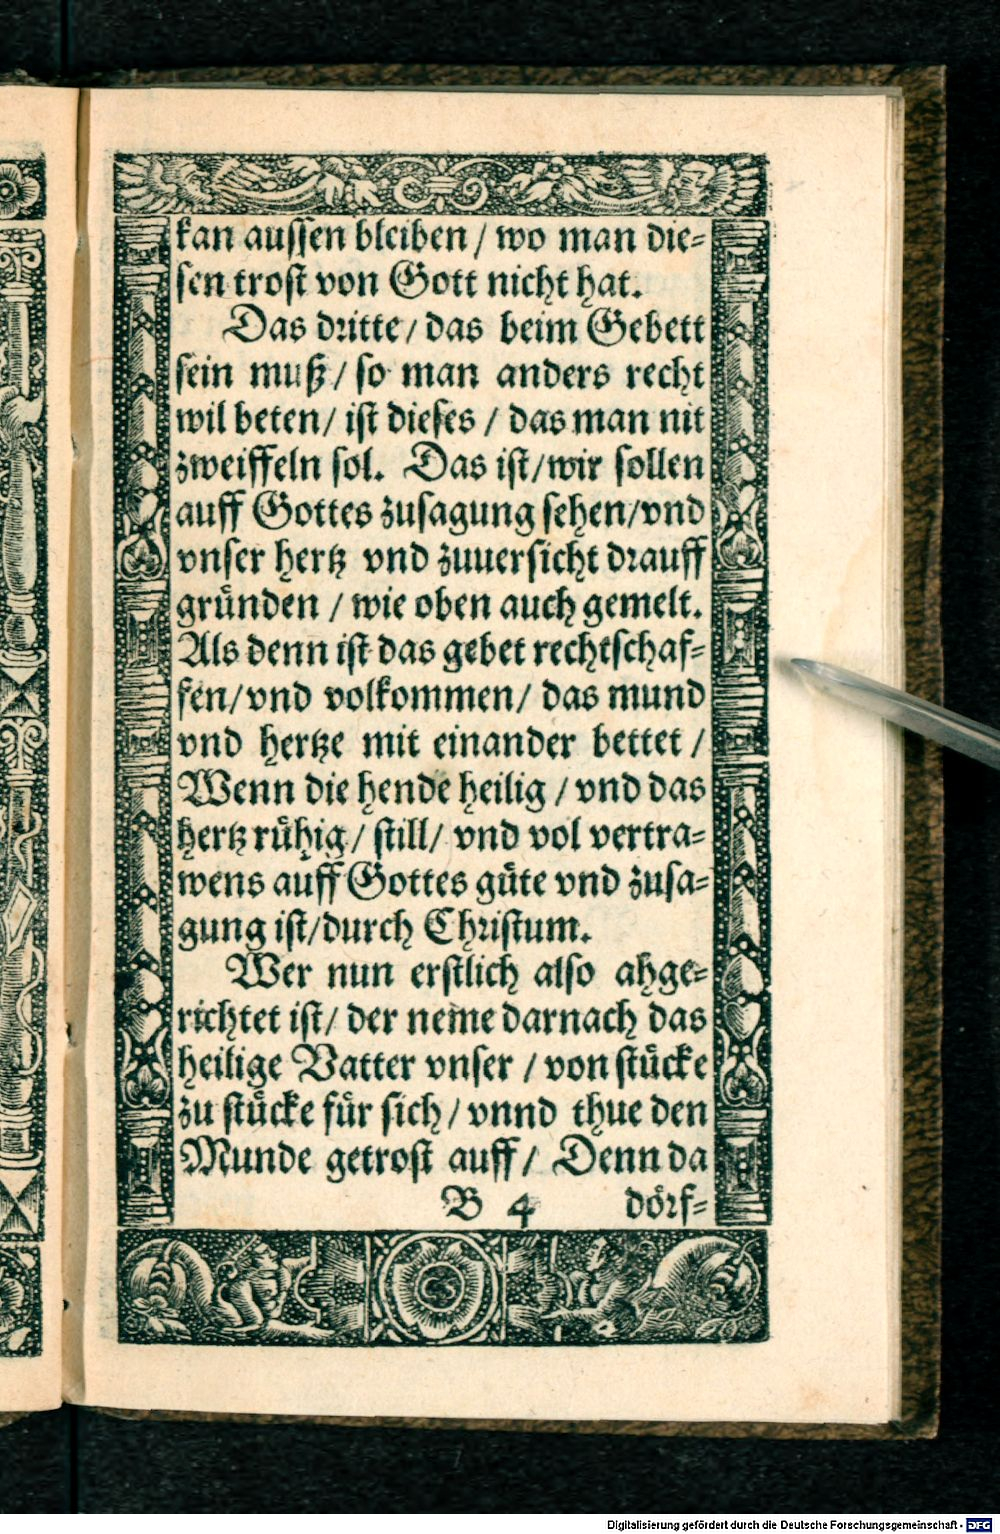 kan aussen bleiben / wo man die=
sen trost von Gott nicht hat.
Das dritte / das beim Gebett
sein muß / so man anders recht
wil beten / ist dieses / das man nit
zweiffeln sol. Das ist / wir sollen
auff Gottes zusagung sehen / vnd
vnser hertz vnd zuuersicht drauff
gründen / wie oben auch gemelt.
Als denn ist das gebet rechtschaf=
fen / vnd volkommen / das mund
vnd hertze mit einander bettet /
Wenn die hende heilig / vnd das
hertz rühig / still / vnd vol vertra=
wens auff Gottes güte vnd zusa=
gung ist / durch Christum.
Wer nun erstlich also ahge=
richtet ist / der neme darnach das
heilige Vatter vnser / von stücke
zu stücke für sich / vnnd thue den
Munde getrost auff / Denn da
B 4 dörf=
Digitalisierung gefördert durch die Deutsche Forschungsgemeinschaft - DFG